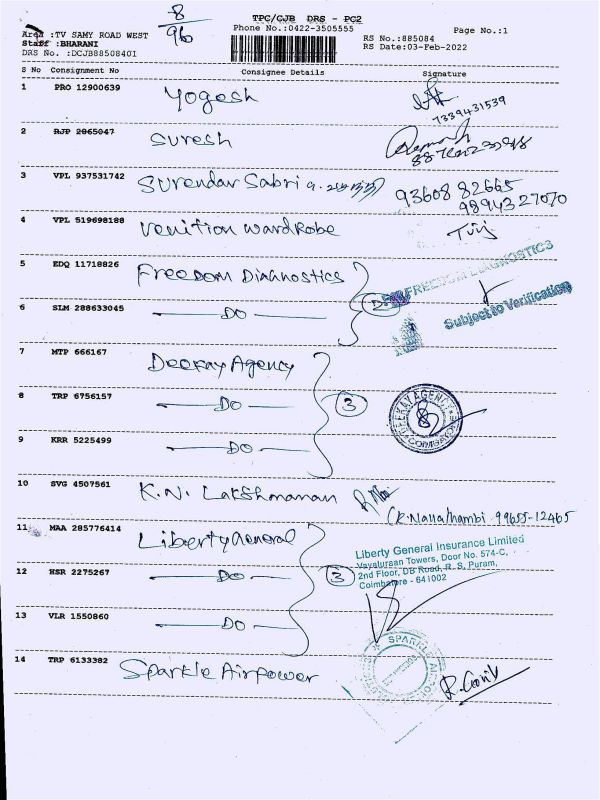 8
96
TPC/CJB DRS - PC2
Phone No.:0422-3505555
Page No.:1
Area :TV SAMY ROAD WEST
Staff :BHARANI
DRS No. :DCJB88508401
RS No.:885084
RS Date:03-Feb-2022
S No Consignment No Consignee Details Signature
1 PRO 12900639 Yogesh
7339431539
2 RJP 2865047 Suresh
3 VPL 937531742 Surendar Sabri 93608 82665
98943 27070
4 VPL 519698188 Venition Wardrobe
5 EDQ 11718826 Freedom Diagnostics
FREEDOM DIAGNOSTICS
Subject to Verification
6 SLM 288633045 DO
7 MTP 666167 Deekay Agency
8 TRP 6756157 DO 3
DEEKAY AGENCY
9 KRR 5225499 DO
10 SVG 4507561 K.N. Lakshmanan
99655-12465
11 MAA 285776414 Liberty General
Liberty General Insurance Limited
Vayaluraan Towers, Door No. 574-C,
2nd Floor, DB Road, R. S. Puram,
Coimbatore - 641002
12 HSR 2275267 DO 3
13 VLR 1550860 DO
14 TRP 6133382 Sparkle Airpower
SPARKLE